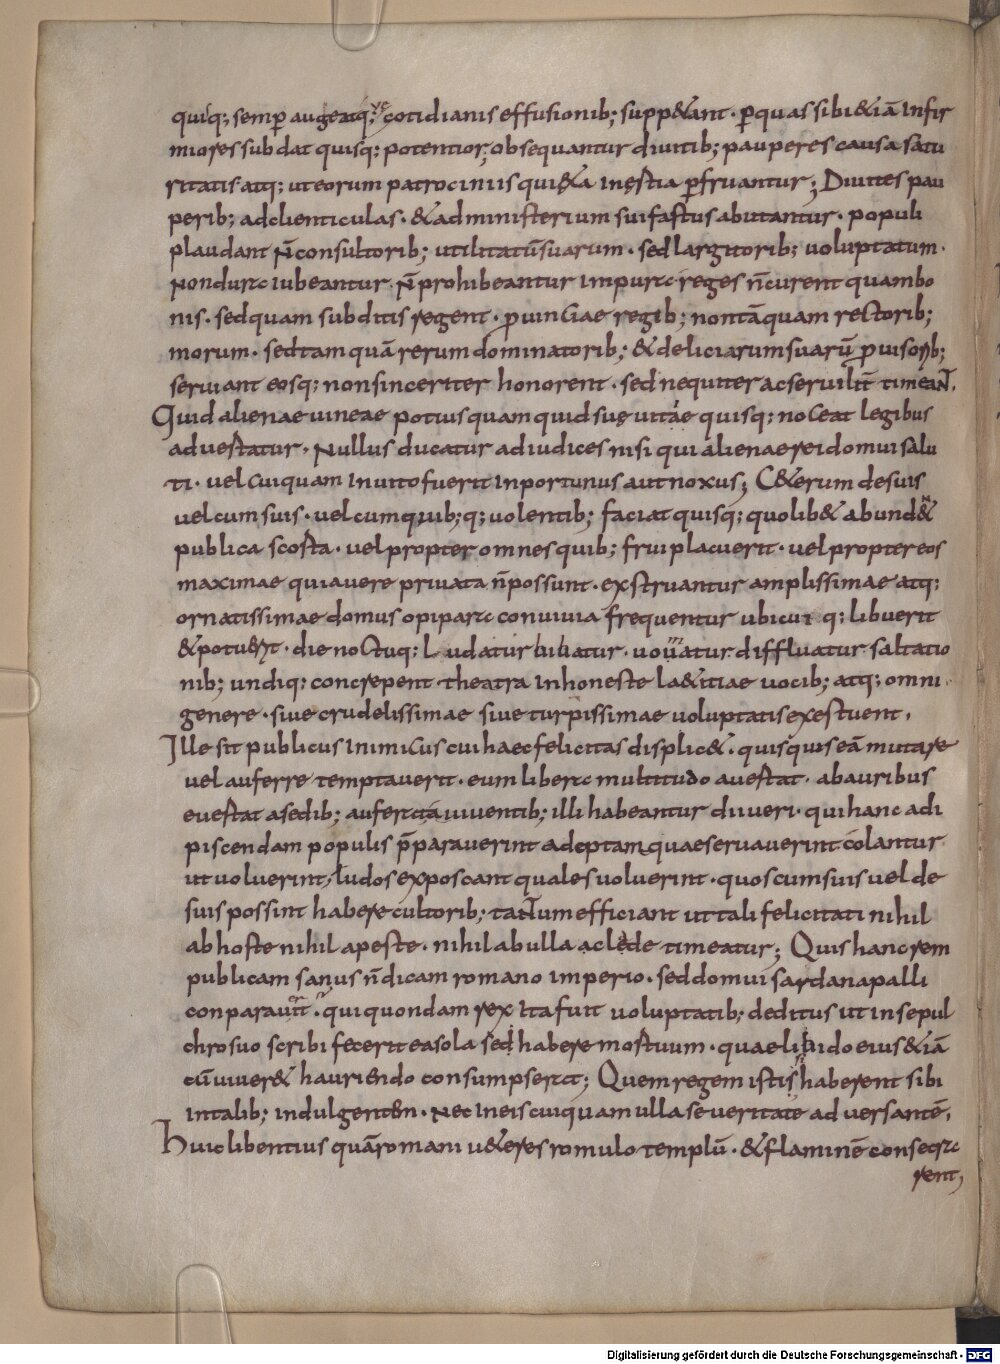 quiq; semp augeatq; cotidianis effusionib; supp&ant · p quas sibi &iā infir
miores subdat quisq; potentior; obsequantur diuitib; pauperes causa satu
ritatis atq; ut eorum patrociniis qui&a inęstia pfruantur; Diuites pau
perib; ad clienticulas · & ad ministerium sui fastus abutantur · populi
plaudant n̄ consultorib; utilitatū suarum · sed largitorib; uoluptatum ·
Non dura iubeantur · N̄ prohibeantur impura reges n̄ curent quam bo
nis · sed quam subditis regent · puinciae regib; non tāquam rectorib;
morum · sed tam quā rerum dominatorib; & deliciarum suarū puisorib;
seruiant eosq; non sinceriter honorent · sed nequiter ac seruilit̄ timeant.
Quid alienae uineae potius quam quid suę uitae quisq; noceat legibus
aduestatur · Nullus ducatur ad iudices nisi qui alienae rei domui salu
ti · uel cuiquam inuito fuerit inportunus aut noxus; C&erum de suis
uel cum suis · uel cum quib;q; uolentib; faciat quisq; quod lib& abund&
publica scosta · uel propter omnes quib; frui placuerit · uel propter eos
maximae qui auere priuata n̄ possunt · exstruantur amplissimae atq;
ornatissimae domus opipara conuiuia frequentur ubi cui q; libuerit
& potuerit · die noctuq; ludatur bibatur · uouatur diffluatur saltatio
nib; undiq; concrepent theatra inhoneste la&itiae uocib; atq; omni
genere · siue crudelissimae siue turpissimae uoluptatis exestuent.
Ille sit publicus inimicus cui haec felicitas displic& · quisquis eā mutare
uel auferre temptauerit · eum libera multitudo auestat · ab auribus
euestat a sedib; auferat a uiuentib; illi habeantur dii ueri · qui hanc adi
piscendam populis p̄parauerint adeptamquae seruauerint colantur
ut uoluerint, ludos exposcant quales uoluerint · quos cum suis uel de
suis possint habere cultorib; tantum efficiant ut tali felicitati nihil
ab hoste nihil a peste · nihil ab ulla aclede timeatur; Quis hanc rem
publicam sanus n̄ dicam romano imperio · sed domui sardanapalli
conparauit · qui quondam rex ita fuit uoluptatib; deditus ut in sepul
chro suo scribi fecerit ea sola sed habere mostuum · quae libido eius &iā
cū uiuer& hauriendo consumpserat; Quem regem istis haberent sibi
in talib; indulgentem · Nec in eis cuiquam ulla seueritate aduersantē.
Huic libentius quā romani u&eres romulo templū · & flaminē consecra
rent;